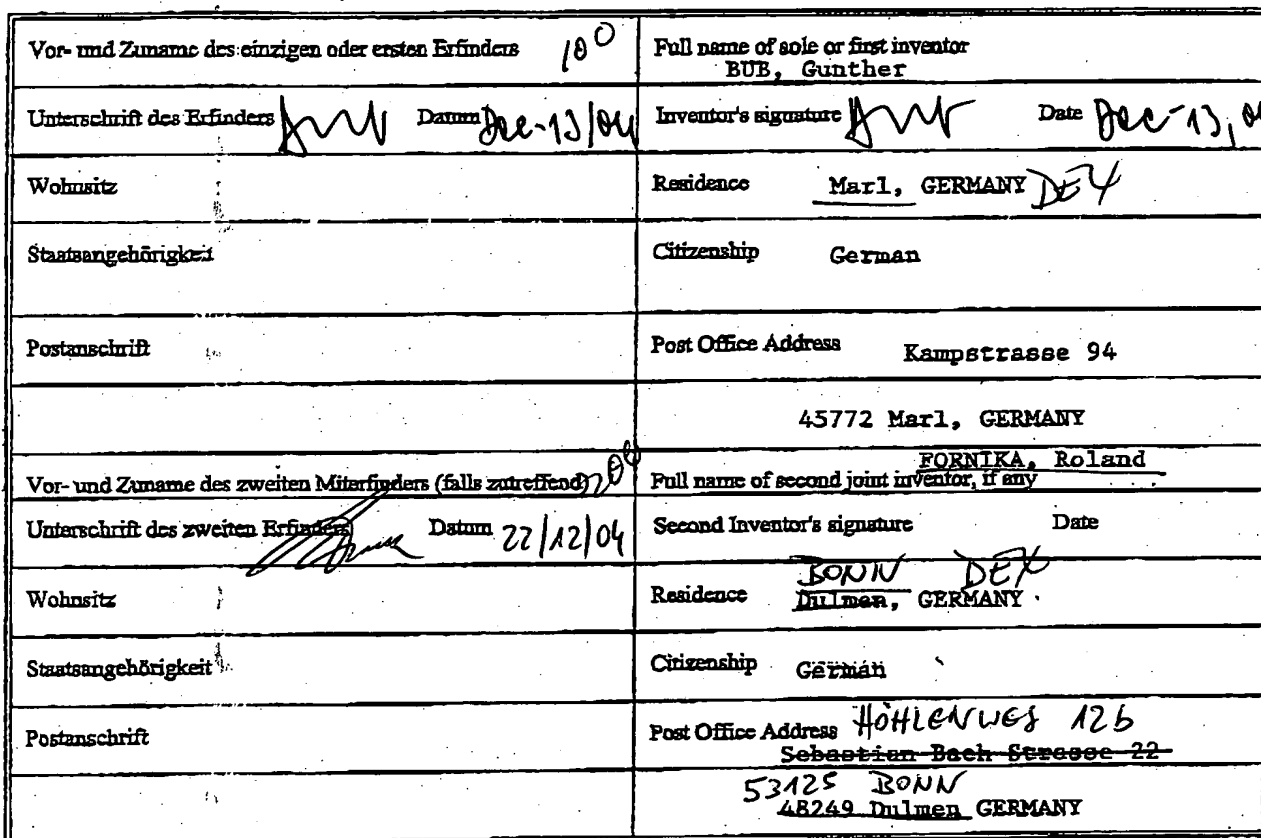 Vor- und Zuname des einzigen oder ersten Erfinders
Full name of sole or first inventor
BUB, Gunther
Unterschrift des Erfinders Datum Dec-13/04
Inventor's signature Date Dec-13, 04
Wohnsitz
Residence Marl, GERMANY DEX
Staatsangehörigkeit
Citizenship German
Postanschrift
Post Office Address Kampstrasse 94
45772 Marl, GERMANY
Vor- und Zuname des zweiten Miterfinders (falls zutreffend)
FORNIKA, Roland
Full name of second joint inventor, if any
Unterschrift des zweiten Erfinders Datum 22/12/04
Second Inventor's signature Date
Wohnsitz
BONN DEX
Residence Dulmen, GERMANY
Staatsangehörigkeit
Citizenship German
Postanschrift
Post Office Address HÖHLENWEG 12b
Sebastian Bach Strasse 22
53125 BONN
48249 Dulmen GERMANY